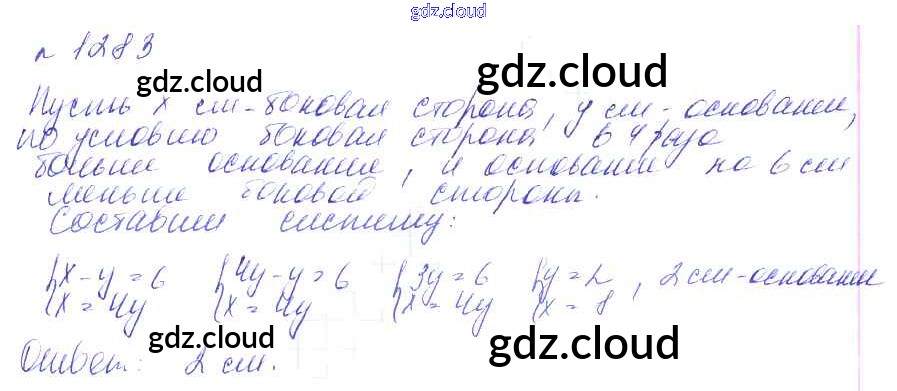 gdz.cloud
№ 1283
gdz.cloud gdz.cloud
Пусть x см - боковая сторона, y см - основание,
по условию боковая сторона в 4 раза
больше основание, и основание на 6 см
меньше боковой стороны.
gdz.cloud gdz.cloud
Составим систему:
{x - y = 6 {4y - y = 6 {3y = 6 {y = 2, 2 см - основание
{x = 4y {x = 4y {x = 4y {x = 8
gdz.cloud gdz.cloud
Ответ: 2 см.